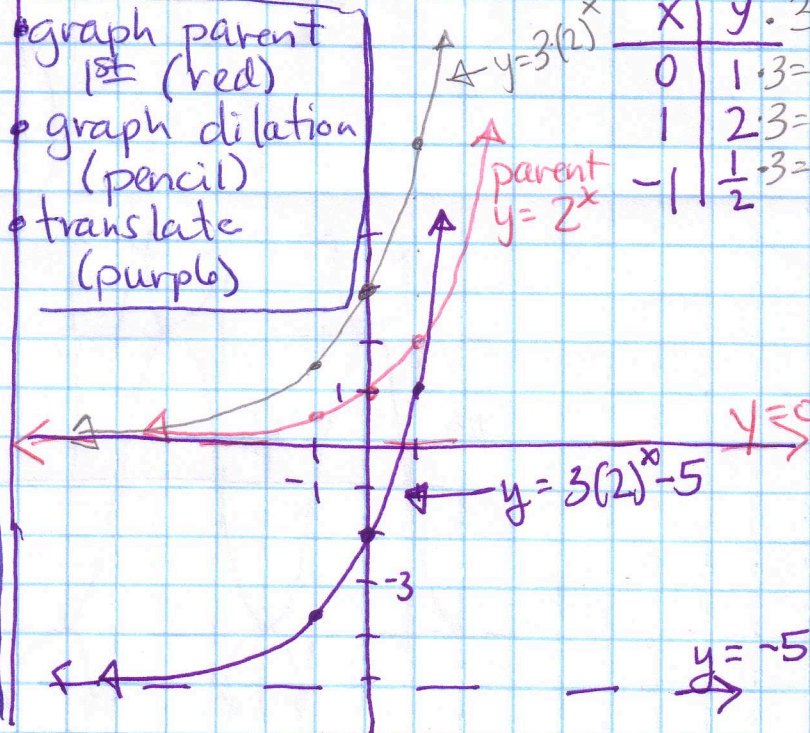 • graph parent
1st (red)
• graph dilation
(pencil)
• translate
(purple)
y=3·(2)^x
x | y · 3
0 | 1·3=
1 | 2·3=
-1 | 1/2·3=
parent
y= 2^x
1
y=0
-1
y = 3(2)^x-5
-3
y = -5